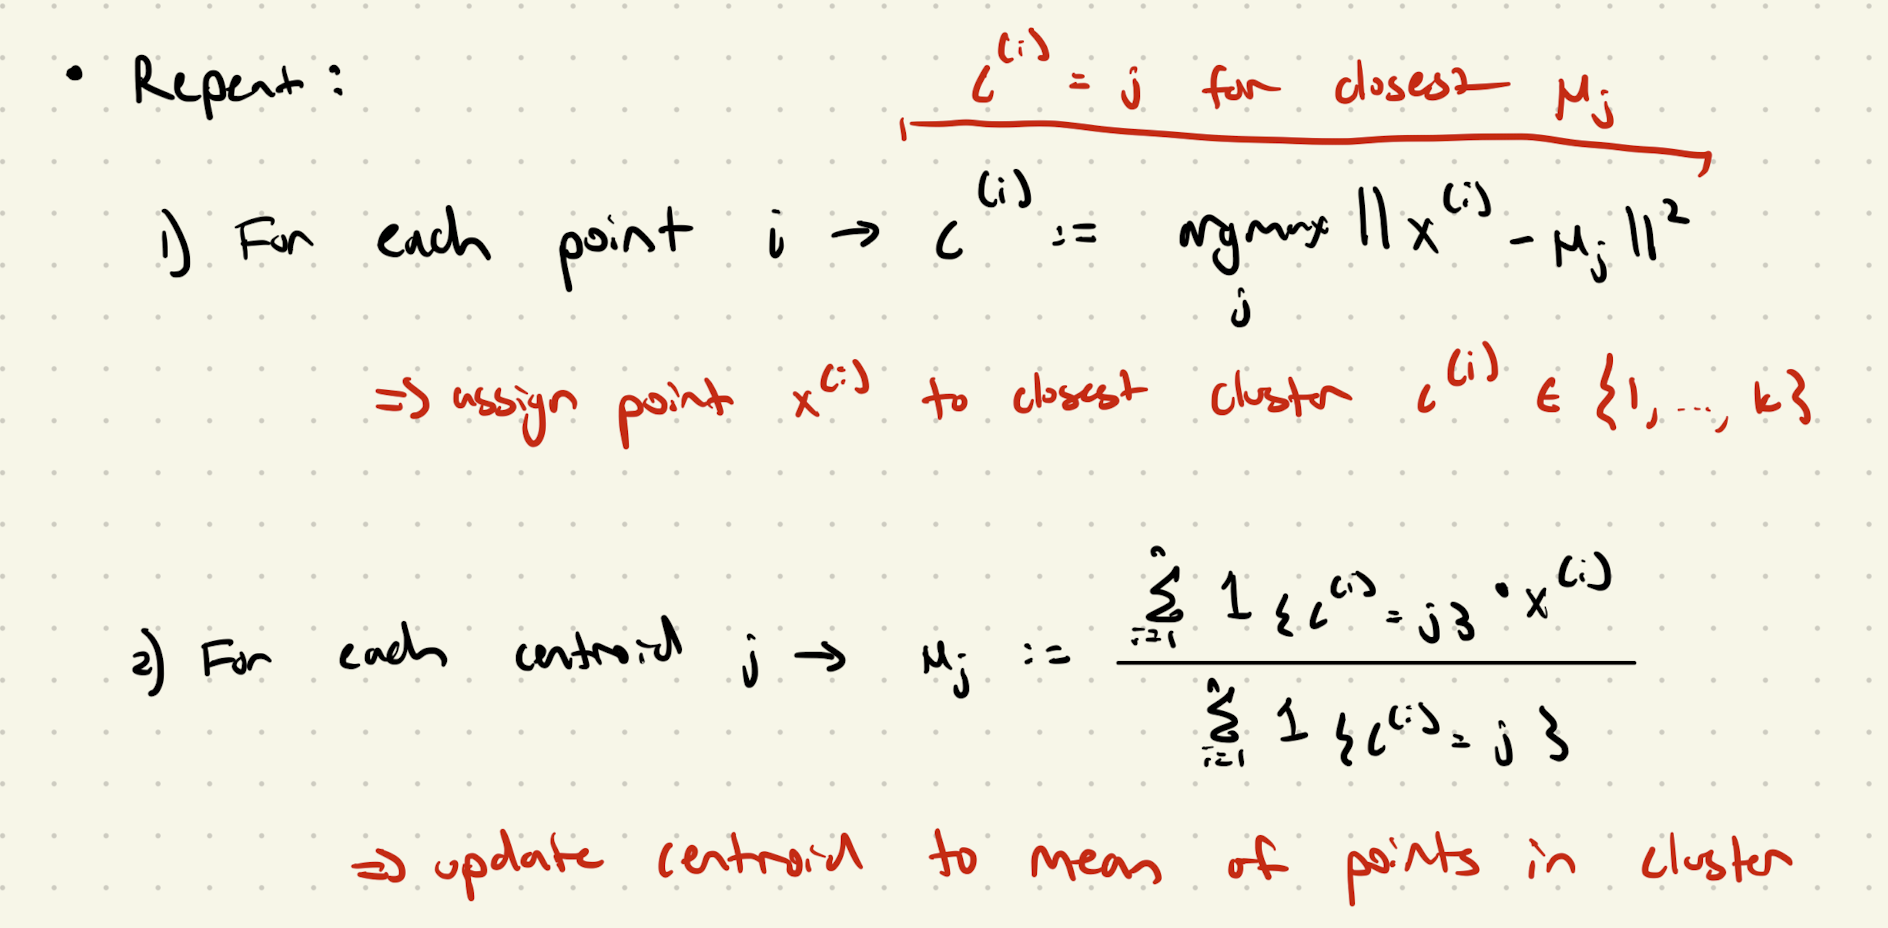 • Repeat:
c^(i) = j for closest μ_j
1) For each point i → c^(i) := argmax_j ||x^(i) - μ_j||^2
⇒ assign point x^(i) to closest cluster c^(i) ∈ {1, ..., k}
2) For each centroid j → μ_j := (∑_{i=1}^n 1{c^(i) = j} · x^(i)) / (∑_{i=1}^n 1{c^(i) = j})
⇒ update centroid to mean of points in cluster